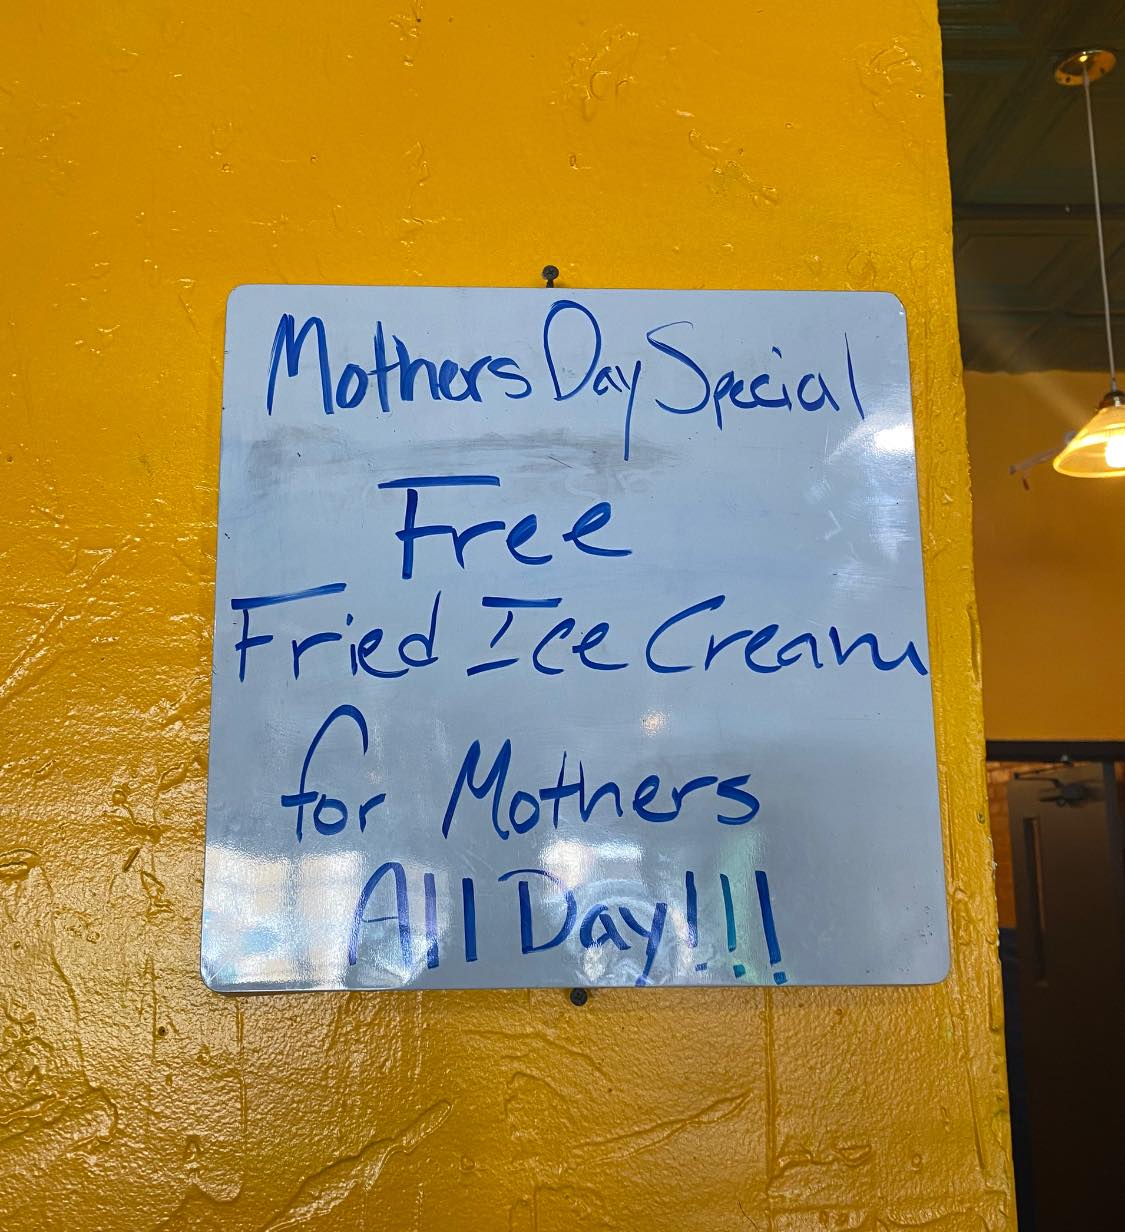 Mothers Day Special
Free
Fried Ice Cream
for Mothers
All Day!!!